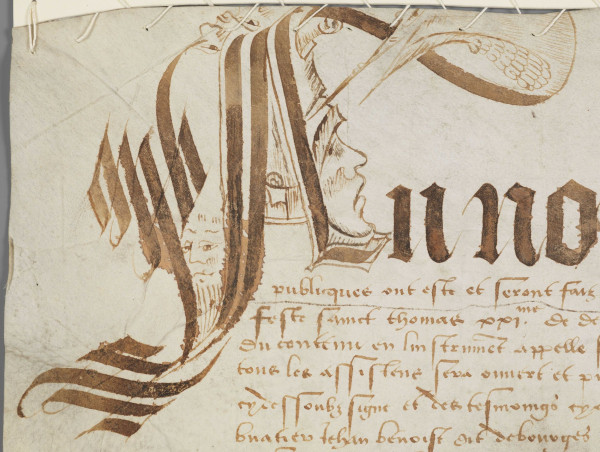 Anno
publiques ont este et seront faiz
feste sainct thomas xxi.me de de
du contenu en linstrument appelle
tous les assistens sera ouvert et p
cydessoubz signe et des tesmoings cy
Jehan benoist dit debourges